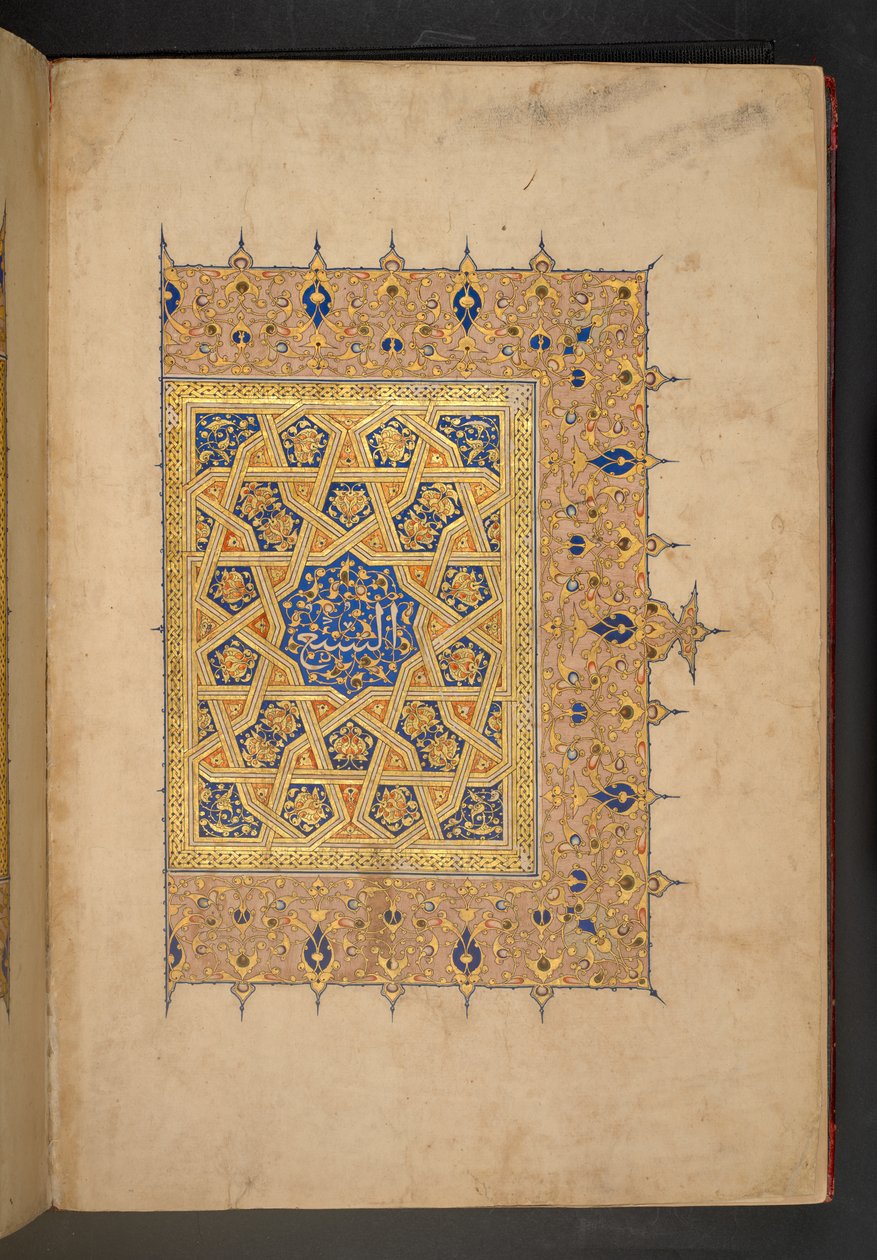 السبع